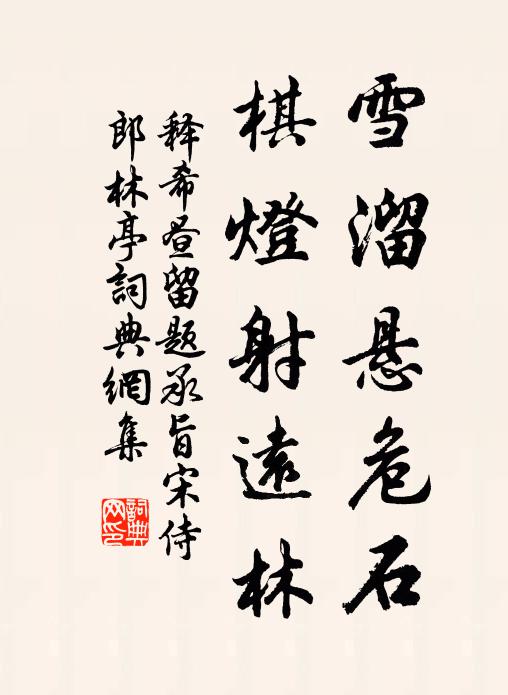 雪溜悬危石
棋燈射遠林
释希昼留题承旨宋侍
郎林亭詞典網集
詞典网印